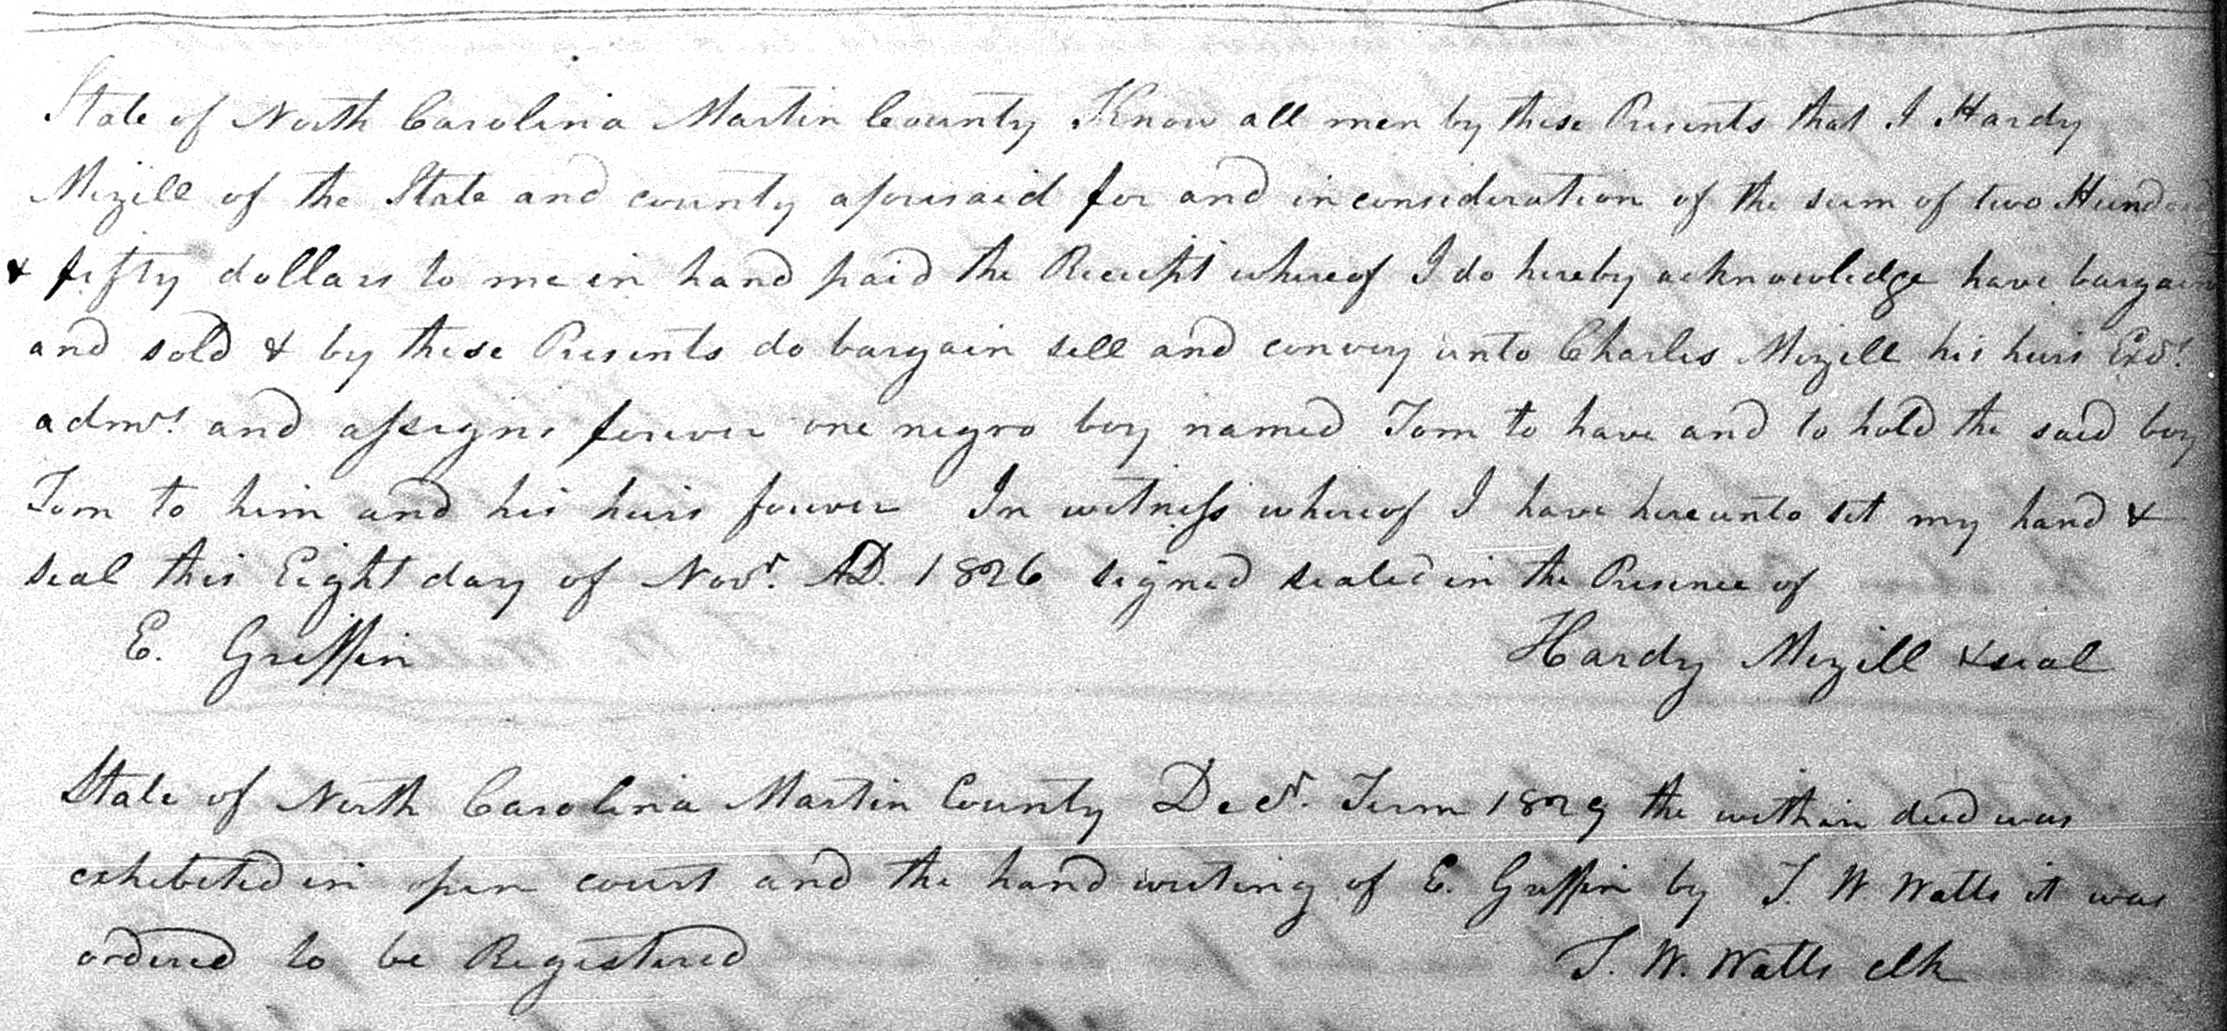 State of North Carolina Martin County Know all men by these Presents that I Hardy
Mizill of the State and county aforesaid for and in consideration of the sum of two Hundred
& fifty dollars to me in hand paid the Receipt whereof I do hereby acknowledge have bargain
and sold & by these Presents do bargain sell and convey unto Charles Mizill his heirs Exrs.
admrs. and assigns forever one negro boy named Tom to have and to hold the said boy
Tom to him and his heirs forever In witness whereof I have hereunto set my hand &
seal this Eight day of Novr. AD. 1826 signed sealed in the Presence of
E. Griffin Hardy Mizill & seal
State of North Carolina Martin County Decr. Term 1829 the within deed was
exhibited in open court and the hand writing of E. Griffin by T. W. Watts it was
ordered to be Registered T. W. Watts clk